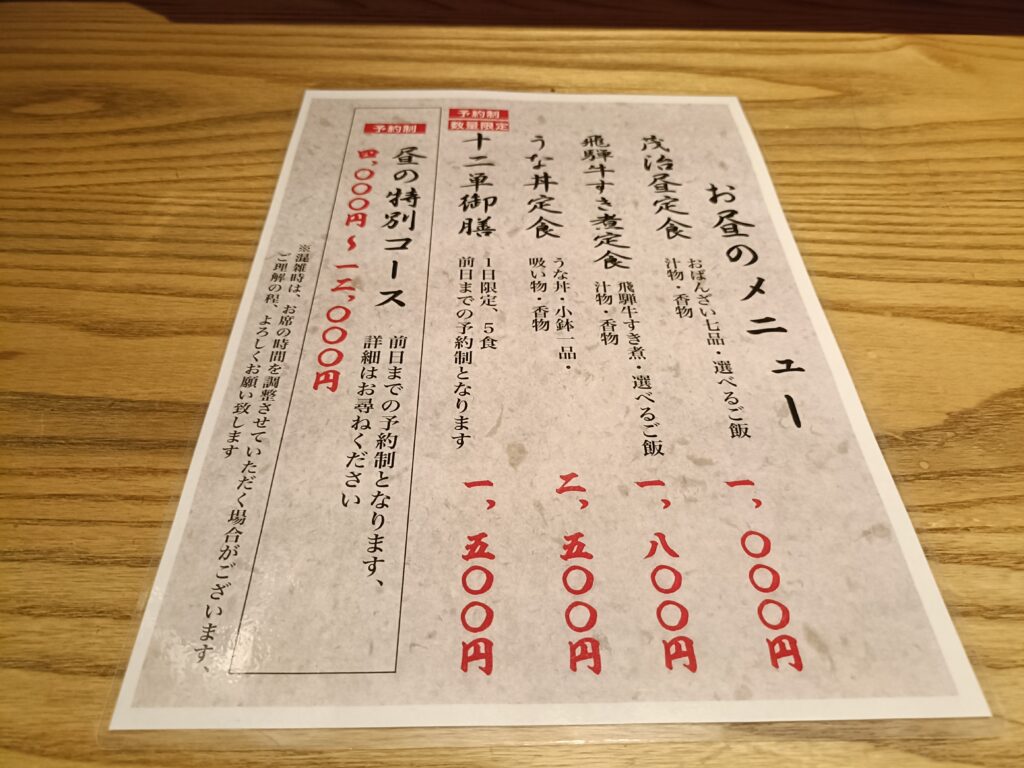 お昼のメニュー
茂治昼定食
おばんざい七品・選べるご飯
汁物・香物
一、〇〇〇円
飛騨牛すき煮定食
飛騨牛すき煮・選べるご飯
汁物・香物
一、八〇〇円
うな丼定食
うな丼・小鉢一品・
吸い物・香物
二、五〇〇円
予約制
数量限定
十二単御膳
1日限定、5食
前日までの予約制となります
一、五〇〇円
予約制
昼の特別コース
前日までの予約制となります、
詳細はお尋ねください
四、〇〇〇円~一二、〇〇〇円
※混雑時は、お席の時間を調整させていただく場合がございます、
ご理解の程、よろしくお願い致します